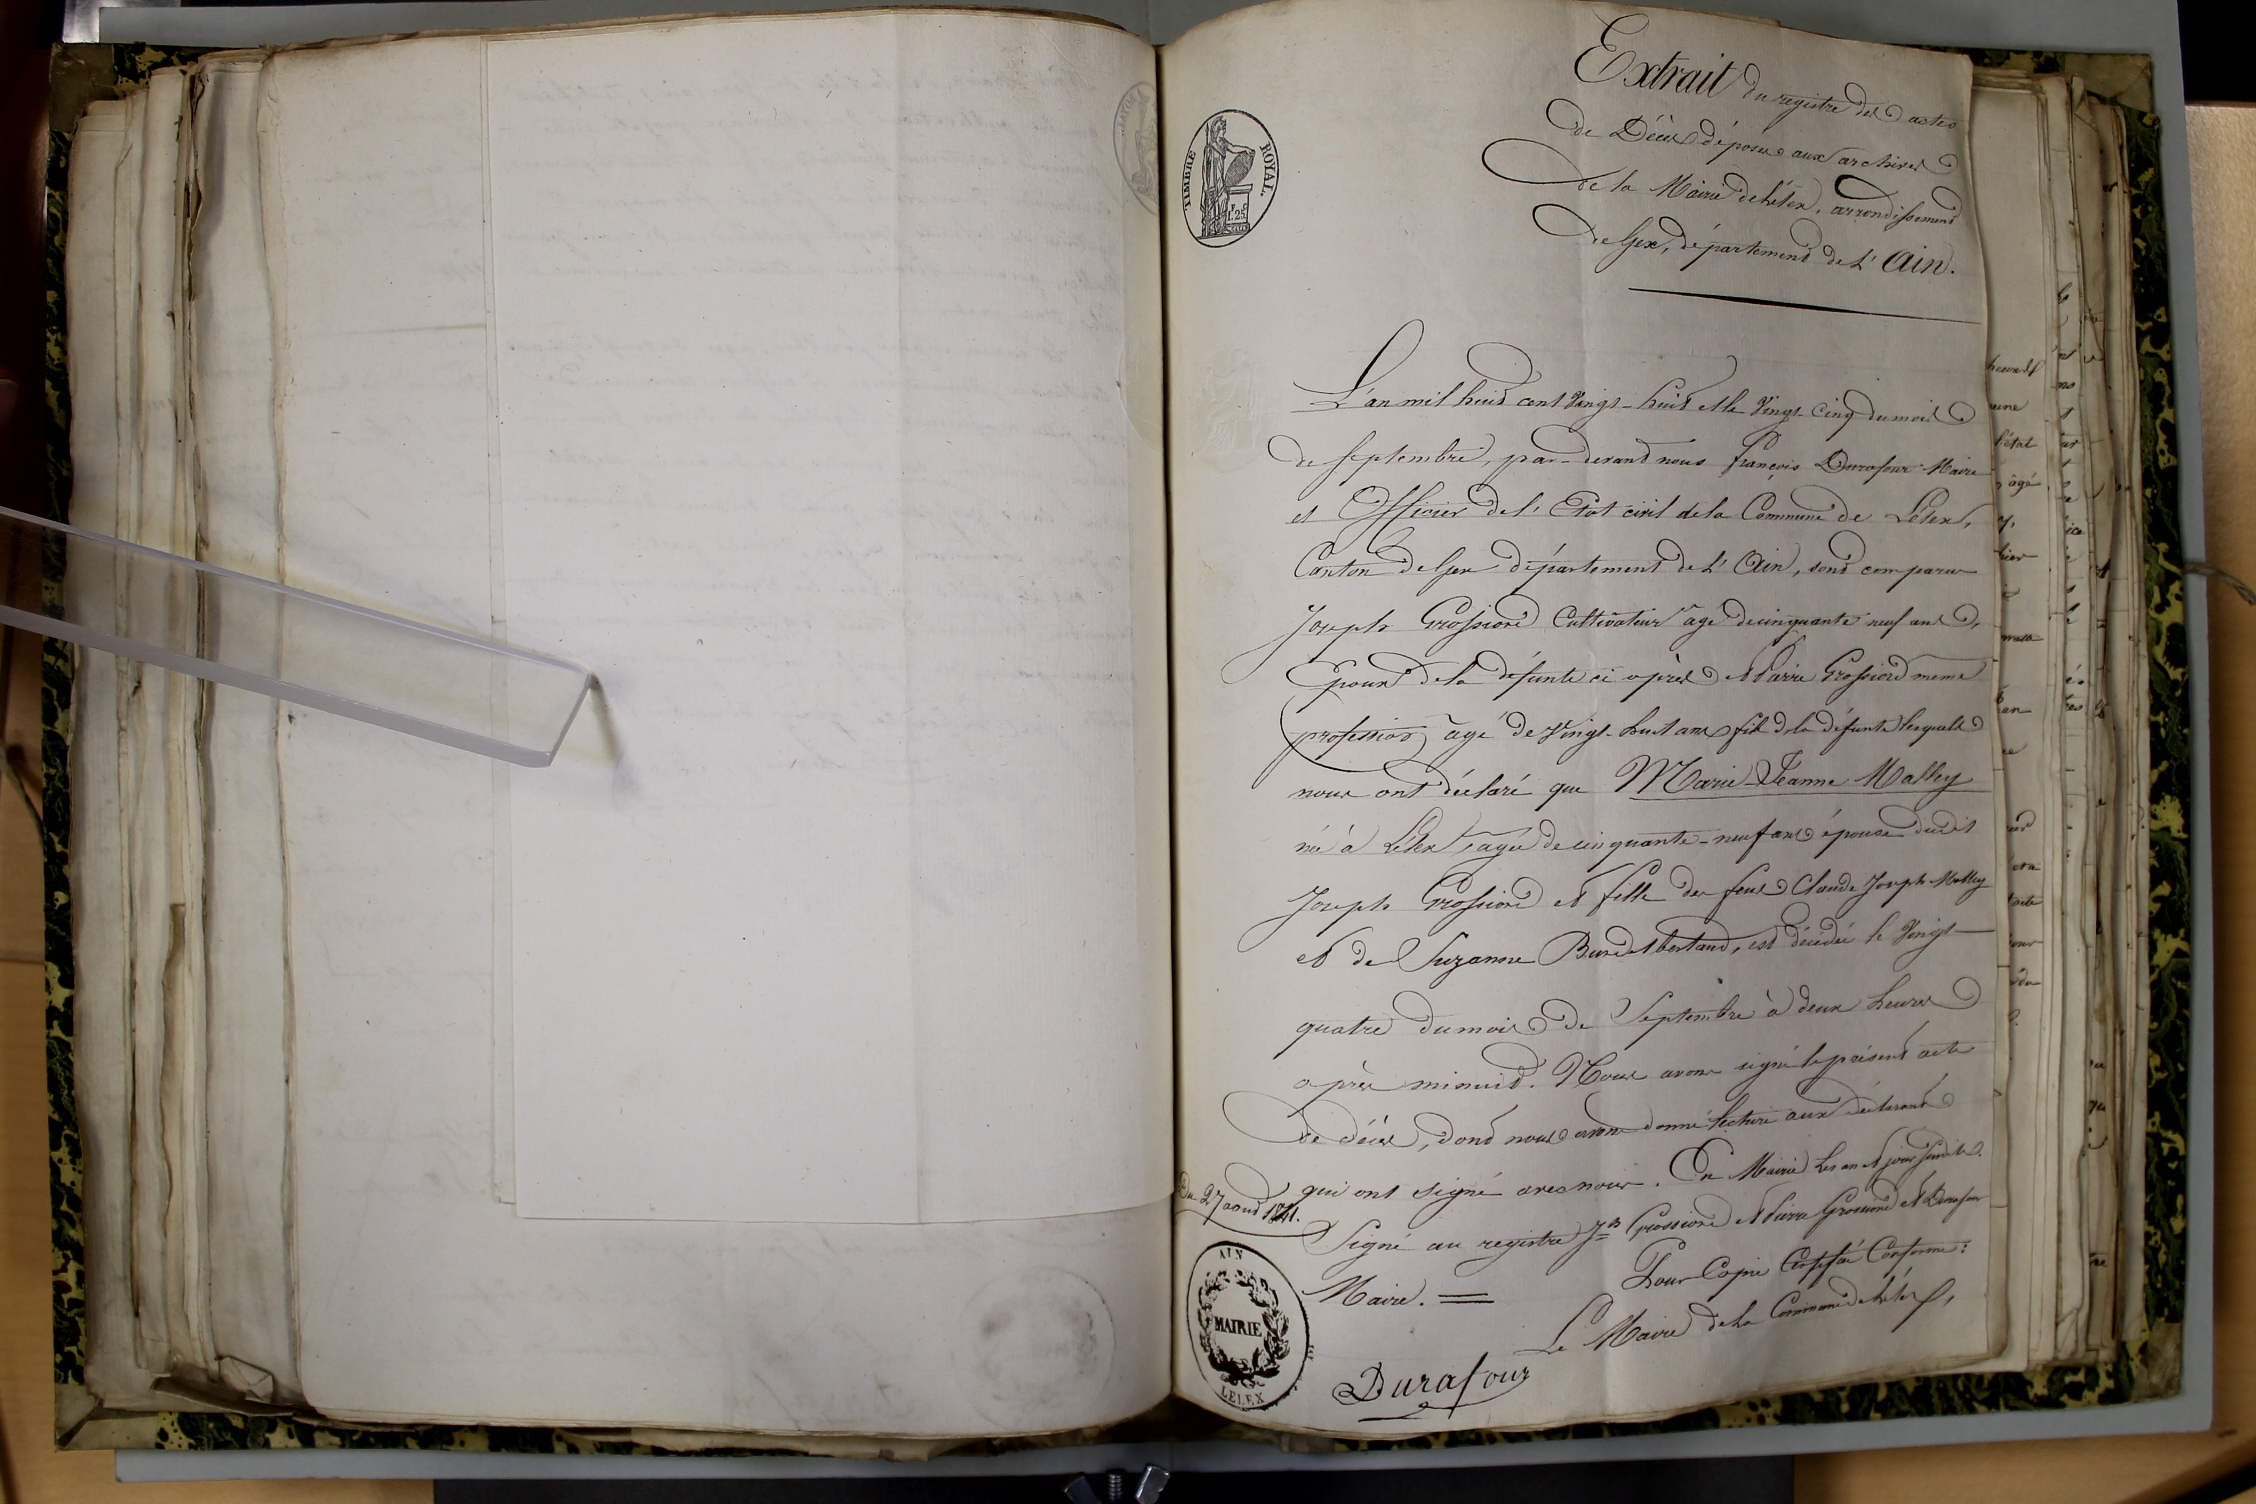 Extrait du registre des actes
de Décès déposés aux archives
de la Mairie de Lélex, arrondissement
de Gex, département de l'Ain.
TIMBRE ROYAL.
1.25
L'an mil huit cent vingt-huit et le vingt cinq du mois
de septembre, par-devant nous françois Durafour Maire
et Officier de l'Etat civil de la Commune de Lélex,
Canton de Gex département de l'Ain, sont comparus
Joseph Grossiord Cultivateur âgé de cinquante neuf ans,
époux de la défunte ci après et Pierre Grossiord même
profession, âgé de vingt-huit ans fils de la défunte lesquels
nous ont déclaré que Marie-Jeanne Malley
née à Lélex, agée de cinquante-neuf ans épouse dudit
Joseph Grossiord et fille des feus Claude Joseph Malley
et de Suzanne Burdet, est décédée le vingt-
quatre du mois de Septembre à deux heures
après minuit. Nous avons signé le présent acte
de décès, dont nous avons donné lecture aux déclarants
qui ont signé avec nous. En Mairie les an et jour susdits.
Du 27 août 1841.
Signé au registre Jh Grossiord et Pierre Grossiord et Durafour
Maire. =
Pour Copie Certifié Conforme:
Le Maire de la Commune de Lélex,
Durafour
AIN
MAIRIE
LELEX